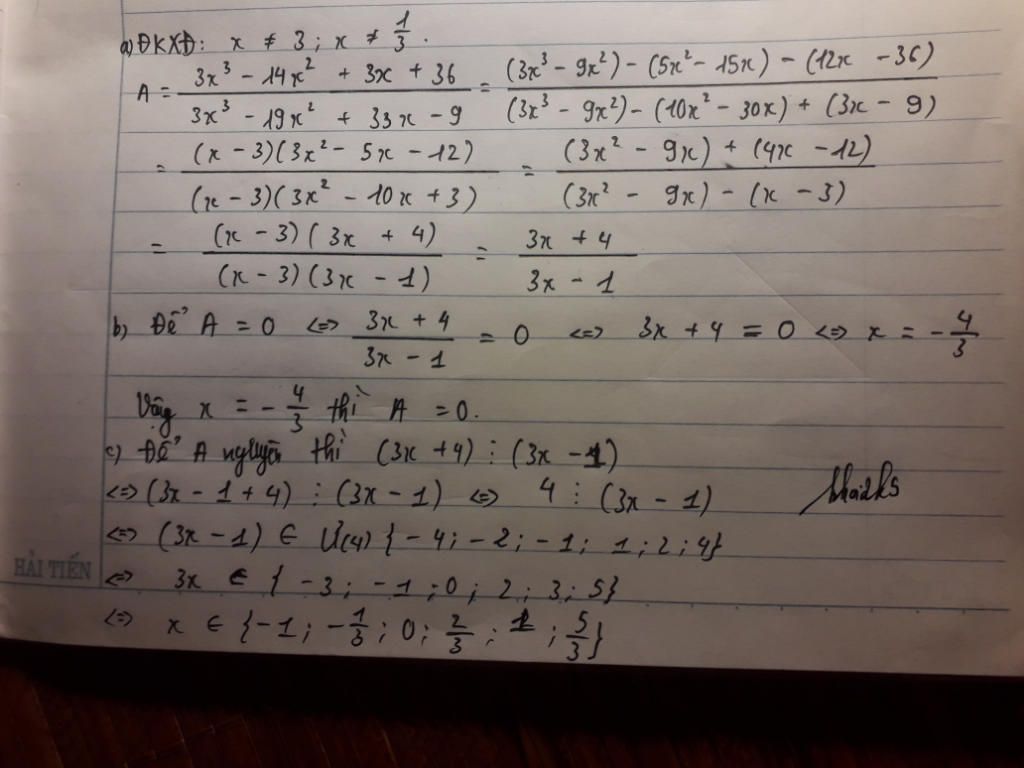 a) ĐKXĐ: x ≠ 3; x ≠ 1/3.
A = (3x³ - 14x² + 3x + 36)/(3x³ - 19x² + 33x - 9) = ((3x³ - 9x²) - (5x² - 15x) - (12x - 36))/((3x³ - 9x²) - (10x² - 30x) + (3x - 9))
= ((x - 3)(3x² - 5x - 12))/((x - 3)(3x² - 10x + 3)) = ((3x² - 9x) + (4x - 12))/((3x² - 9x) - (x - 3))
= ((x - 3)(3x + 4))/((x - 3)(3x - 1)) = (3x + 4)/(3x - 1)
b) Để A = 0 <=> (3x + 4)/(3x - 1) = 0 <=> 3x + 4 = 0 <=> x = -4/3
Vậy x = -4/3 thì A = 0.
c) Để A nguyên thì (3x + 4) ⋮ (3x - 1)
<=> (3x - 1 + 4) ⋮ (3x - 1) <=> 4 ⋮ (3x - 1)
<=> (3x - 1) ∈ Ư(4) {-4; -2; -1; 1; 2; 4}
HẢI TIẾN
<=> 3x ∈ {-3; -1; 0; 2; 3; 5}
<=> x ∈ {-1; -1/3; 0; 2/3; 1; 5/3}